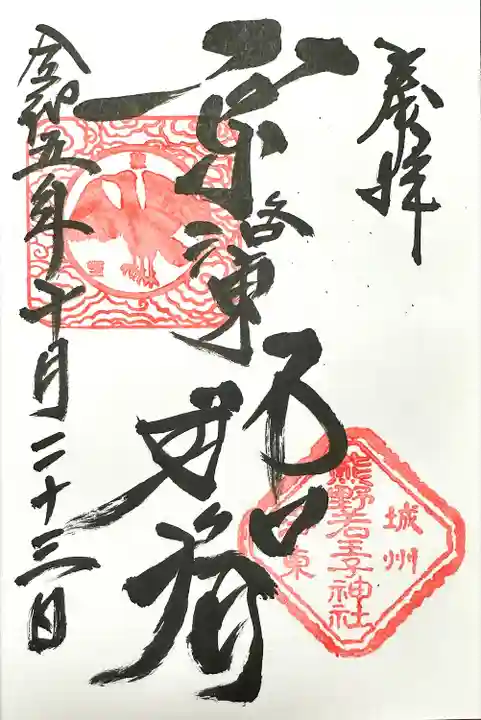 奉拝
京
洛東
城州
熊野若王子神社
東
令和五年十月二十三日